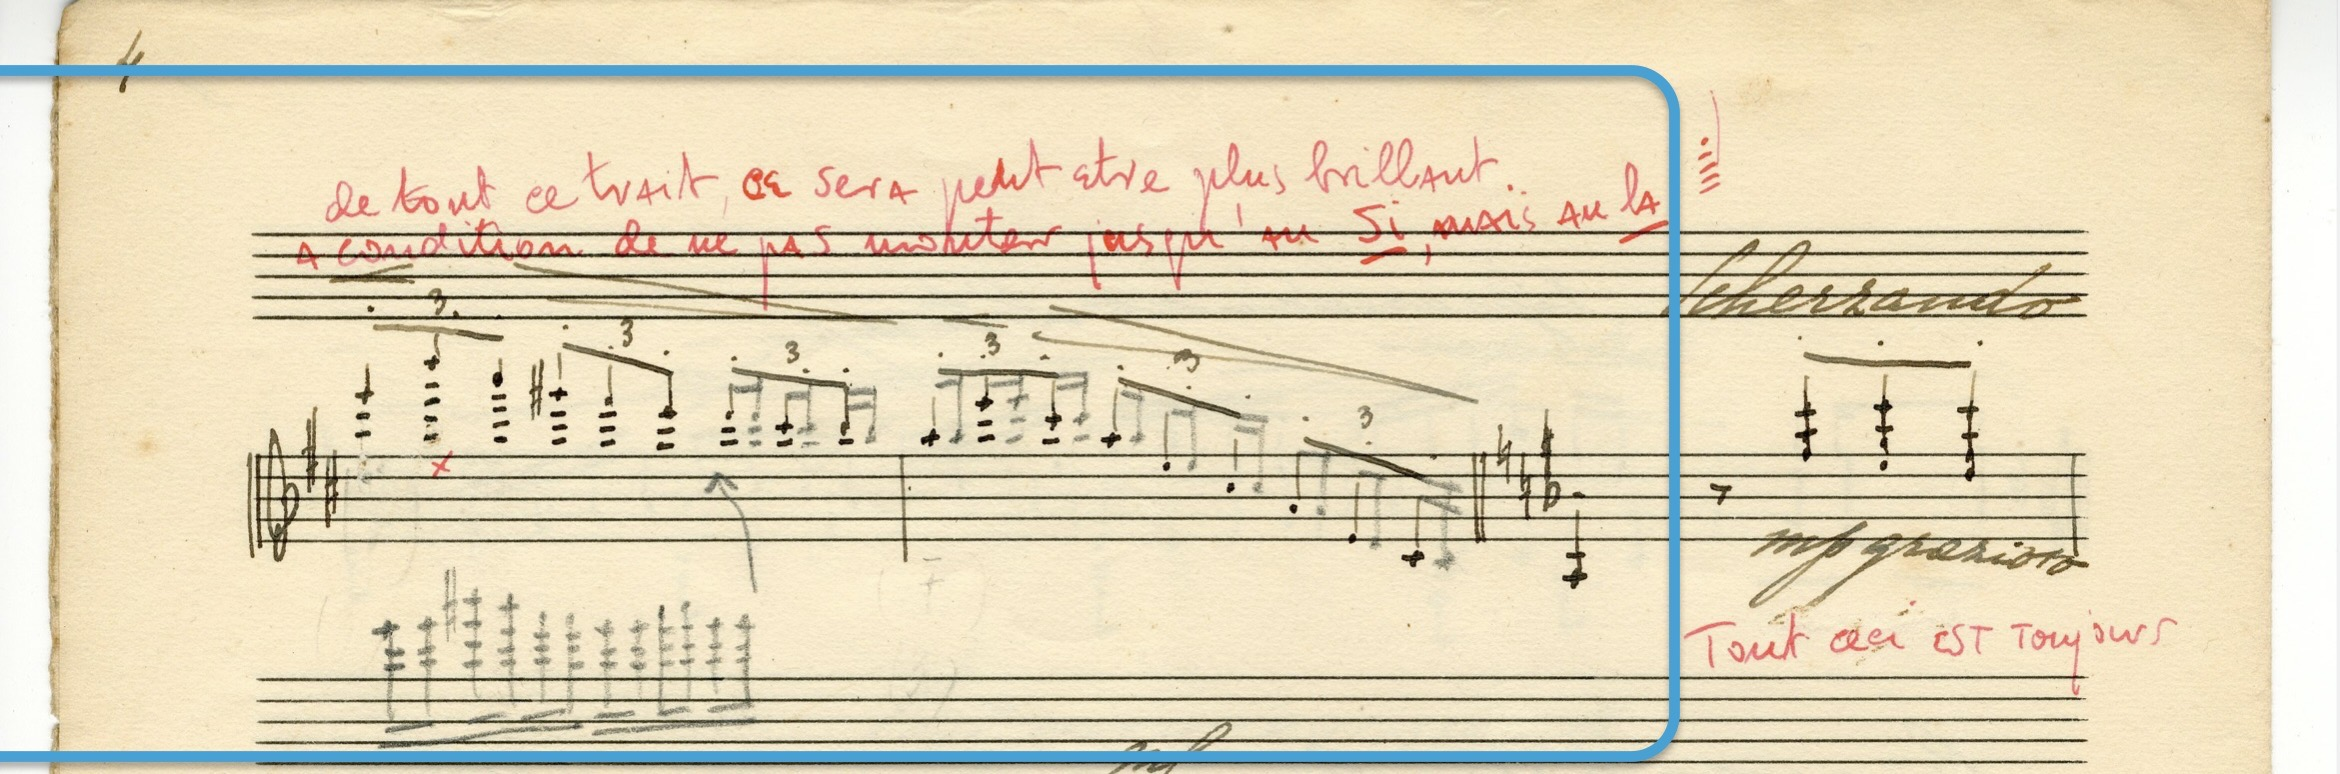 4
de tout ce trait, ce sera peut etre plus brillant.
A condition de ne pas monter jusqu'au Si, mais au la
Scherzando
3 3 3 3 3 3
mp grazioso
Tout ceci EST Toujours
mf